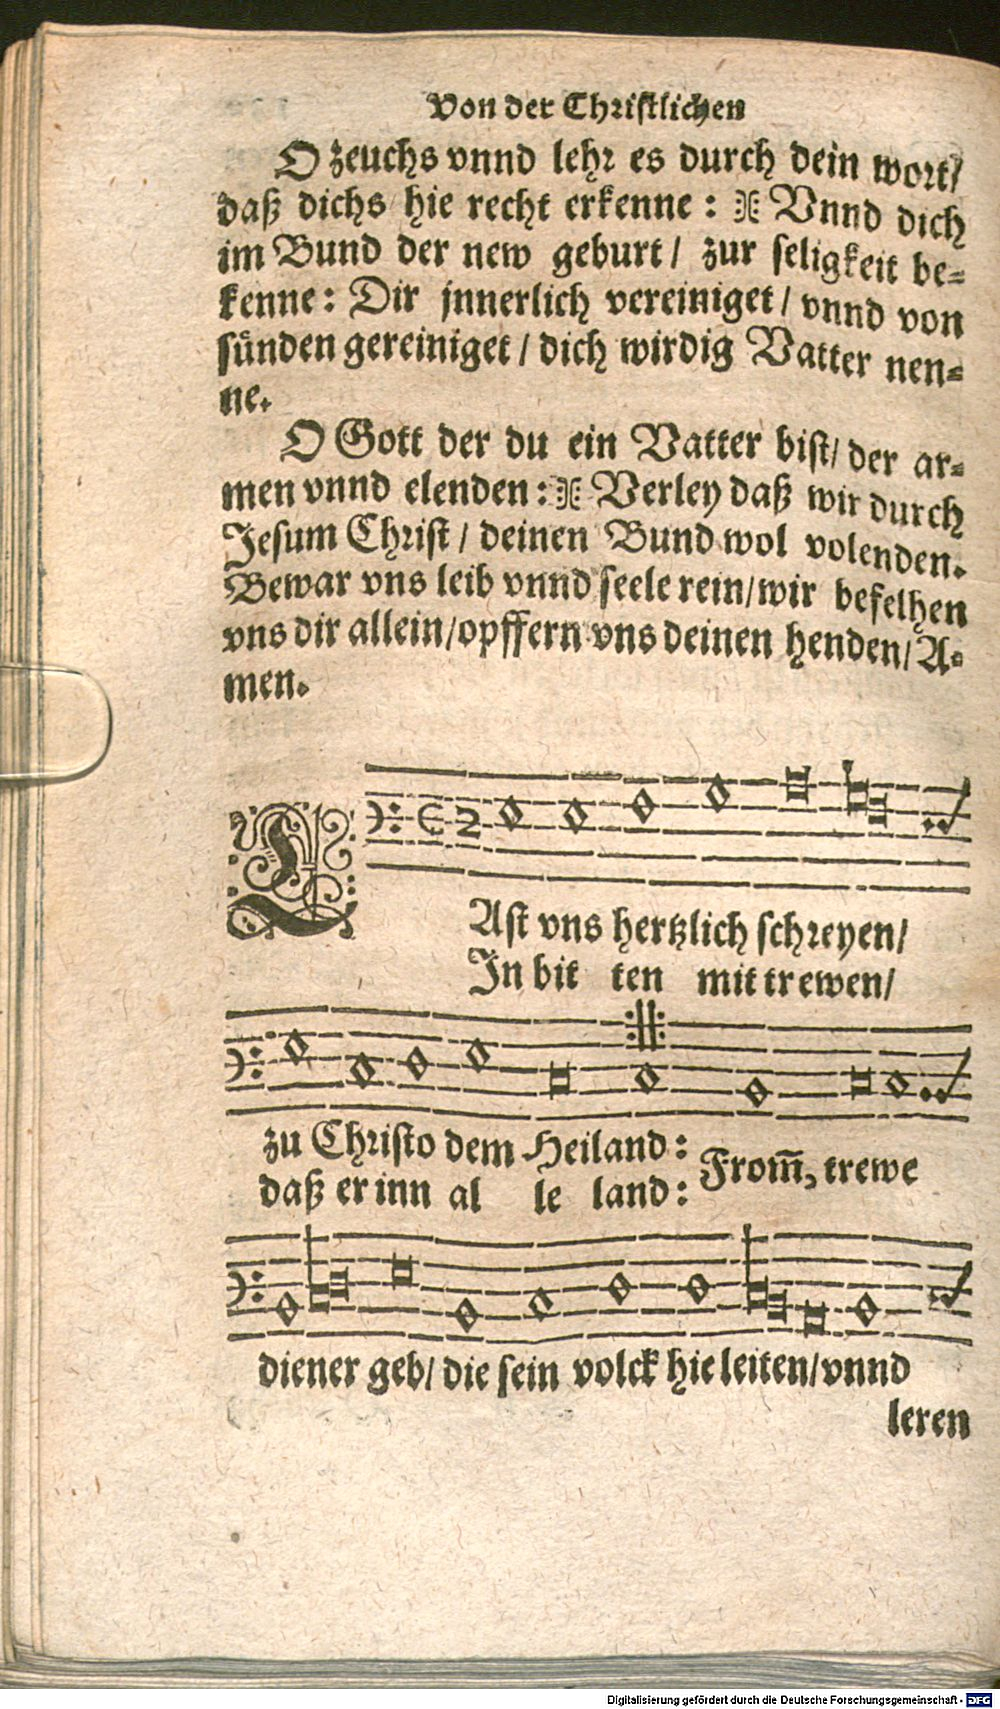 Von der Christlichen
O zeuchs vnnd lehr es durch dein wort/
daß dichs hie recht erkenne: Vnnd dich
im Bund der new geburt/ zur seligkeit be⸗
kenne: Dir jnnerlich vereiniget/ vnnd von
sünden gereiniget/ dich wirdig Vatter nen⸗
ne.
O Gott der du ein Vatter bist/ der ar⸗
men vnnd elenden: Verley daß wir durch
Jesum Christ/ deinen Bund wol volenden.
Bewar vns leib vnnd seele rein/ wir befelhen
vns dir allein/ opffern vns deinen henden/ A⸗
men.
L
Ast vns hertzlich schreyen/
In bit ten mit trewen/
zu Christo dem Heiland:
daß er inn al le land: From̃, trewe
diener geb/ die sein volck hie leiten/ vnnd
leren
Digitalisierung gefördert durch die Deutsche Forschungsgemeinschaft - DFG